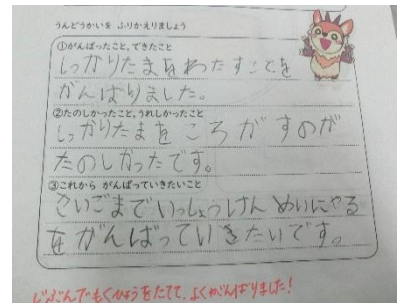 うんどうかいを ふりかえりましょう
①がんばったこと、できたこと
しっかりたまをわたすことを
がんばりました。
②たのしかったこと、うれしかったこと
しっかりたまを ころがすのが
たのしかったです。
③これから がんばっていきたいこと
さいごまでいっしょうけんめいにやる
をがんばっていきたいです。
じぶんでもくひょうをたてて、よくがんばりました！